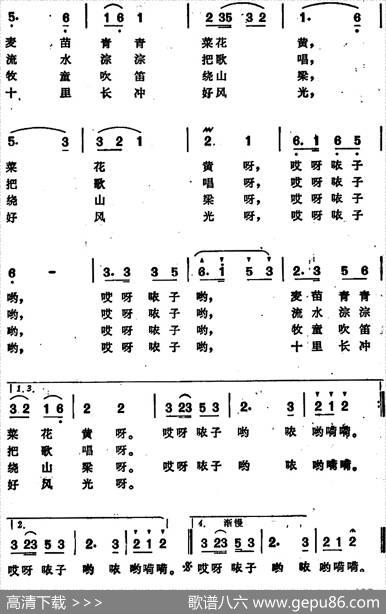 5. 6 1 1 6 2 35 3 2 1. 6
麦 苗 青 青 菜 花 黄，
流 水 淙 淙 把 歌 唱，
牧 童 吹 笛 绕 山 梁，
十 里 长 冲 好 风 光，
5. 3 3 2 1 2. 1 6. 1 6 5
菜 花 黄 呀， 哎 呀 哝 子
把 歌 唱 呀， 哎 呀 哝 子
绕 山 梁 呀， 哎 呀 哝 子
好 风 光 呀， 哎 呀 哝 子
6 - 3. 3 3 5 6. 1 5 3 2. 3 5 6
哟， 哎 呀 哝 子 哟， 麦 苗 青 青
哟， 哎 呀 哝 子 哟， 流 水 淙 淙
哟， 哎 呀 哝 子 哟， 牧 童 吹 笛
哟， 哎 呀 哝 子 哟， 十 里 长 冲
1. 3.
3 2 1 6 2 2 3 23 5 3 2. 3 2 1 2
菜 花 黄 呀。 哎呀 哝子 哟 哝 哟嗬嗬。
把 歌 唱 呀。
绕 山 梁 呀。 哎呀 哝子 哟 哝 哟嗬嗬。
好 风 光 呀。
2. 4. 渐慢
3 23 5 3 2. 3 2 1 2 3 23 5 3 2. 3 2 1 2
哎呀 哝子 哟 哝 哟嗬嗬。 哎呀 哝子 哟 哝 哟嗬嗬。
高清下载 >>> 歌谱八六 www.gepu86.com